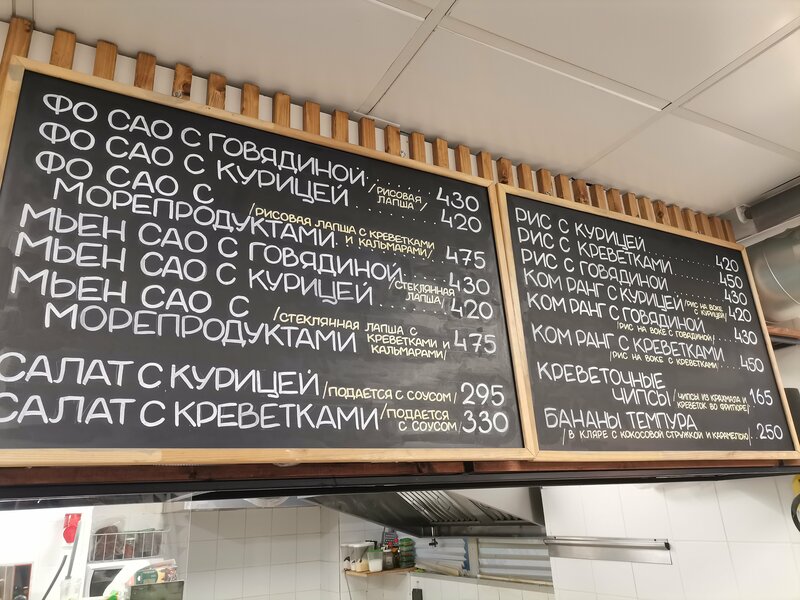 ФО САО С ГОВЯДИНОЙ...... 430
ФО САО С КУРИЦЕЙ /РИСОВАЯ ЛАПША/ 420
ФО САО С
МОРЕПРОДУКТАМИ /РИСОВАЯ ЛАПША С КРЕВЕТКАМИ И КАЛЬМАРАМИ/ 475
МЬЕН САО С ГОВЯДИНОЙ.... 430
МЬЕН САО С КУРИЦЕЙ /СТЕКЛЯННАЯ ЛАПША/ 420
МЬЕН САО С
МОРЕПРОДУКТАМИ /СТЕКЛЯЧНАЯ ЛАПША С КРЕВЕТКАМИ И КАЛЬМАРАМИ/ 475
САЛАТ С КУРИЦЕЙ /ПОДАЕТСЯ С СОУСОМ/ 295
САЛАТ С КРЕВЕТКАМИ /ПОДАЕТСЯ С СОУСОМ/ 330
РИС С КУРИЦЕЙ....... 420
РИС С КРЕВЕТКАМИ..... 450
РИС С ГОВЯДИНОЙ...... 430
КОМ РАНГ С КУРИЦЕЙ /РИС НА ВОКЕ С КУРИЦЕЙ/ 420
КОМ РАНГ С ГОВЯДИНОЙ
/РИС НА ВОКЕ С ГОВЯДИНОЙ/ 430
КОМ РАНГ С КРЕВЕТКАМИ
/РИС НА ВОКЕ С КРЕВЕТКАМИ/ 450
КРЕВЕТОЧНЫЕ
ЧИПСЫ /ЧИПСЫ ИЗ КРАХМАЛА И КРЕВЕТОК ВО ФРИТЮРЕ/ 165
БАНАНЫ ТЕМПУРА
/В КЛЯРЕ С КОКОСОВОЙ СТРУЖКОЙ И КАРАМЕЛЬЮ/ 250